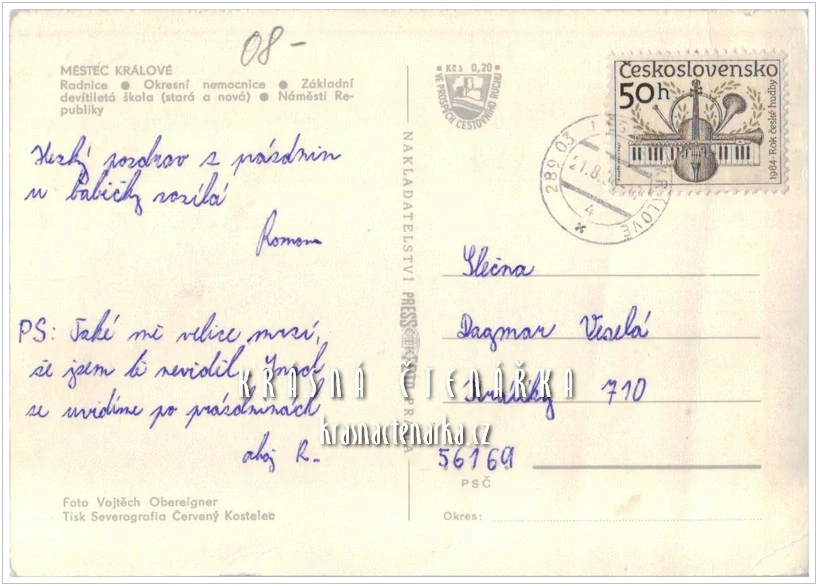 08-
MĚSTEC KRÁLOVÉ
Radnice ● Okresní nemocnice ● Základní
devítiletá škola (stará a nová) ● Náměstí Re-
publiky
Hezký pozdrav z prázdnin
u babičky zasílá
Roman
PS: Také mě velice mrzí,
že jsem tě neviděl. Snad
se uvidíme po prázdninách
ahoj R.
Foto Vojtěch Obereigner
Tisk Severografia Červený Kostelec
NAKLADATELSTVÍ PRESSCENTRUM PRAHA
Kčs 0,20
VE PROSPĚCH CESTOVNÍHO RUCHU
Československo
50h
1984-Rok české hudby
289 03 MĚSTEC KRÁLOVÉ
21.8.
4
Slečna
Dagmar Veselá
Králíky 710
56169
PSČ
Okres:
KRÁSNÁ ČTENÁŘKA
krasnactenarka.cz